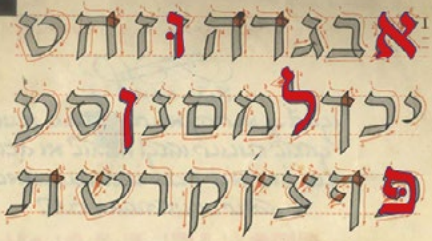 אבגדהוּזחט
יכךלמםנןסע
פףצץקרשת